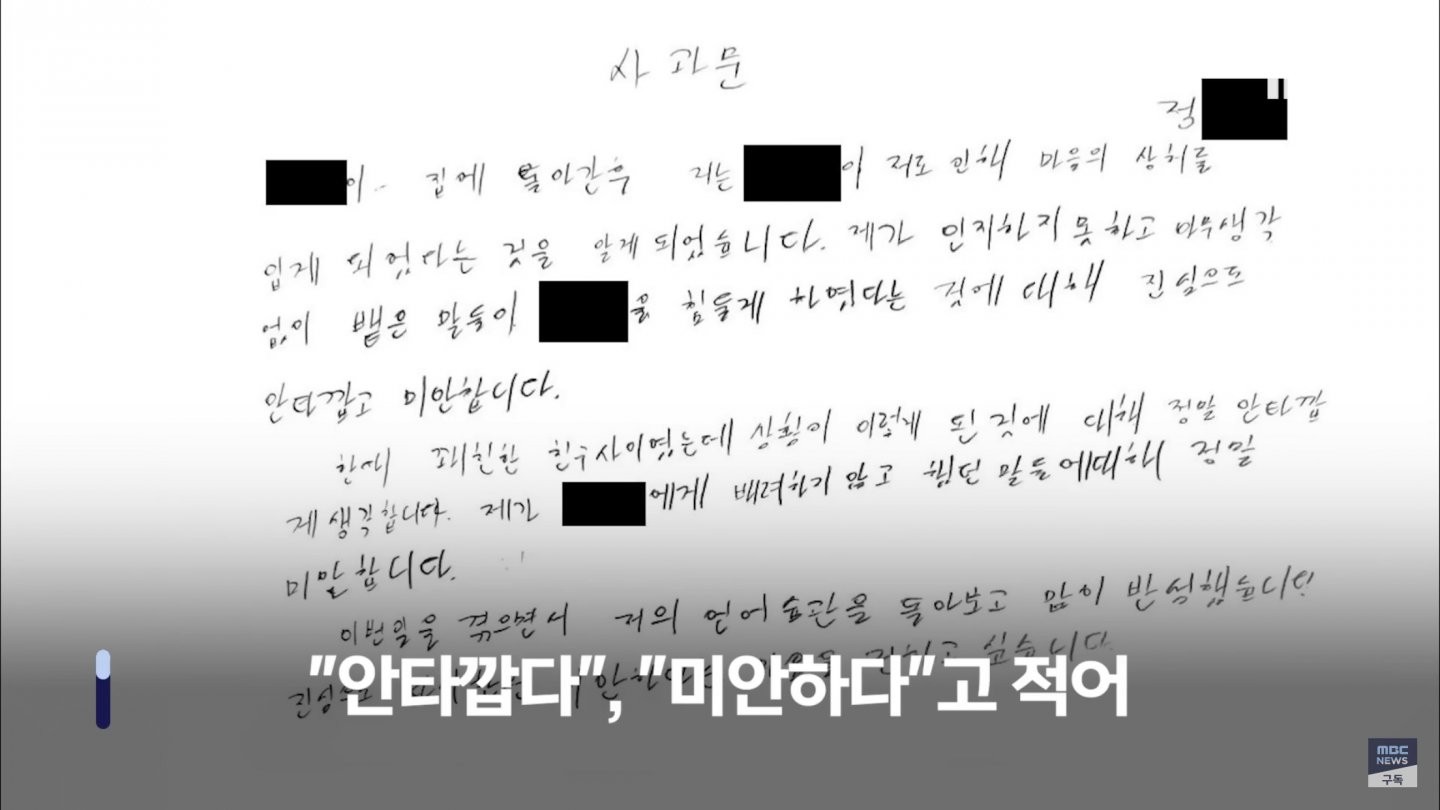 사과문
정
이.. 집에 돌아간후 저는 이 저로 인해 마음의 상처를
입게 되었다는 것을 알게 되었습니다. 제가 인지하지 못하고 아무생각
없이 뱉은 말들이 을 힘들게 하였다는 것에 대해 진심으로
안타깝고 미안합니다.
한때 꽤 친한 친구사이였는데 상황이 이렇게 된 것에 대해 정말 안타깝
게 생각합니다. 제가 에게 배려하지 않고 했던 말들에대해 정말
미안합니다.
이번일을 겪으면서 저의 언어습관을 돌아보고 많이 반성했습니다
전하고 싶습니다
"안타깝다", "미안하다"고 적어
MBC
NEWS
구독